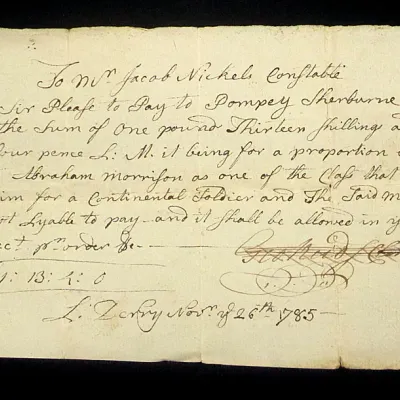 To Mr. Jacob Nickels Constable
Sir Please to Pay to Pompey Sherburne
the Sum of One pound Thirteen Shillings a
four pence L: M. it being for a proportion
Abraham Morrison as one of the Class that
him for a Continental Soldier and The Said M
ot Lyable to pay and it Shall be allowed in y
ect. pr. order &c
1: 13: 4: 0
L: Derry Novr. ye 26th 1785